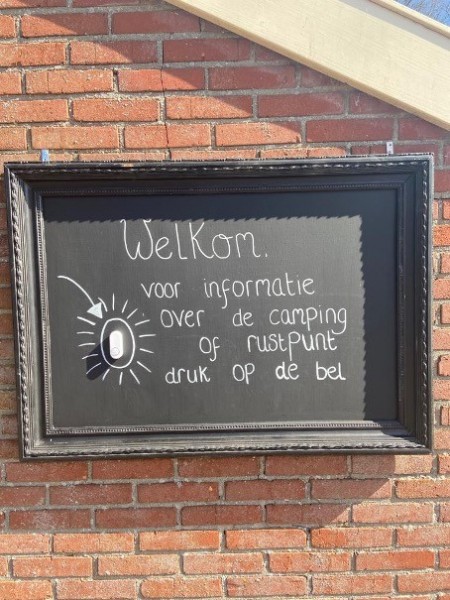 Welkom.
voor informatie
over de camping
of rustpunt
druk op de bel